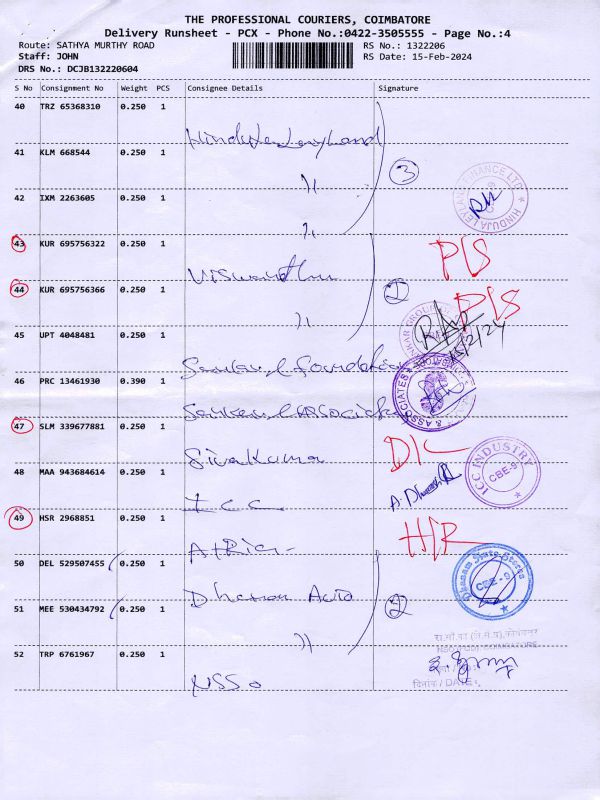 THE PROFESSIONAL COURIERS, COIMBATORE
Delivery Runsheet - PCX - Phone No.:0422-3505555 - Page No.:4
Route: SATHYA MURTHY ROAD
RS No.: 1322206
Staff: JOHN
RS Date: 15-Feb-2024
DRS No.: DCJB132220604
S No Consignment No Weight PCS Consignee Details Signature
40 TRZ 65368310 0.250 1
41 KLM 668544 0.250 1
3
42 IXM 2263605 0.250 1
HINDUJA LEYLAND FINANCE LTD
43 KUR 695756322 0.250 1
P/S
44 KUR 695756366 0.250 1
P/S
45 UPT 4048481 0.250 1
15/2/24
46 PRC 13461930 0.390 1
& ASSOCIATES
47 SLM 339677881 0.250 1
Sivakumar
D/C
ICC INDUSTRY
CBE-9
48 MAA 943684614 0.250 1
ICC
49 HSR 2968851 0.250 1
H/R
50 DEL 529507455 0.250 1
Dhanam Auto
2
Dhanam Auto Stores
CBE-9
51 MEE 530434792 0.250 1
52 TRP 6761967 0.250 1
NSSO
दिनांक / DATE